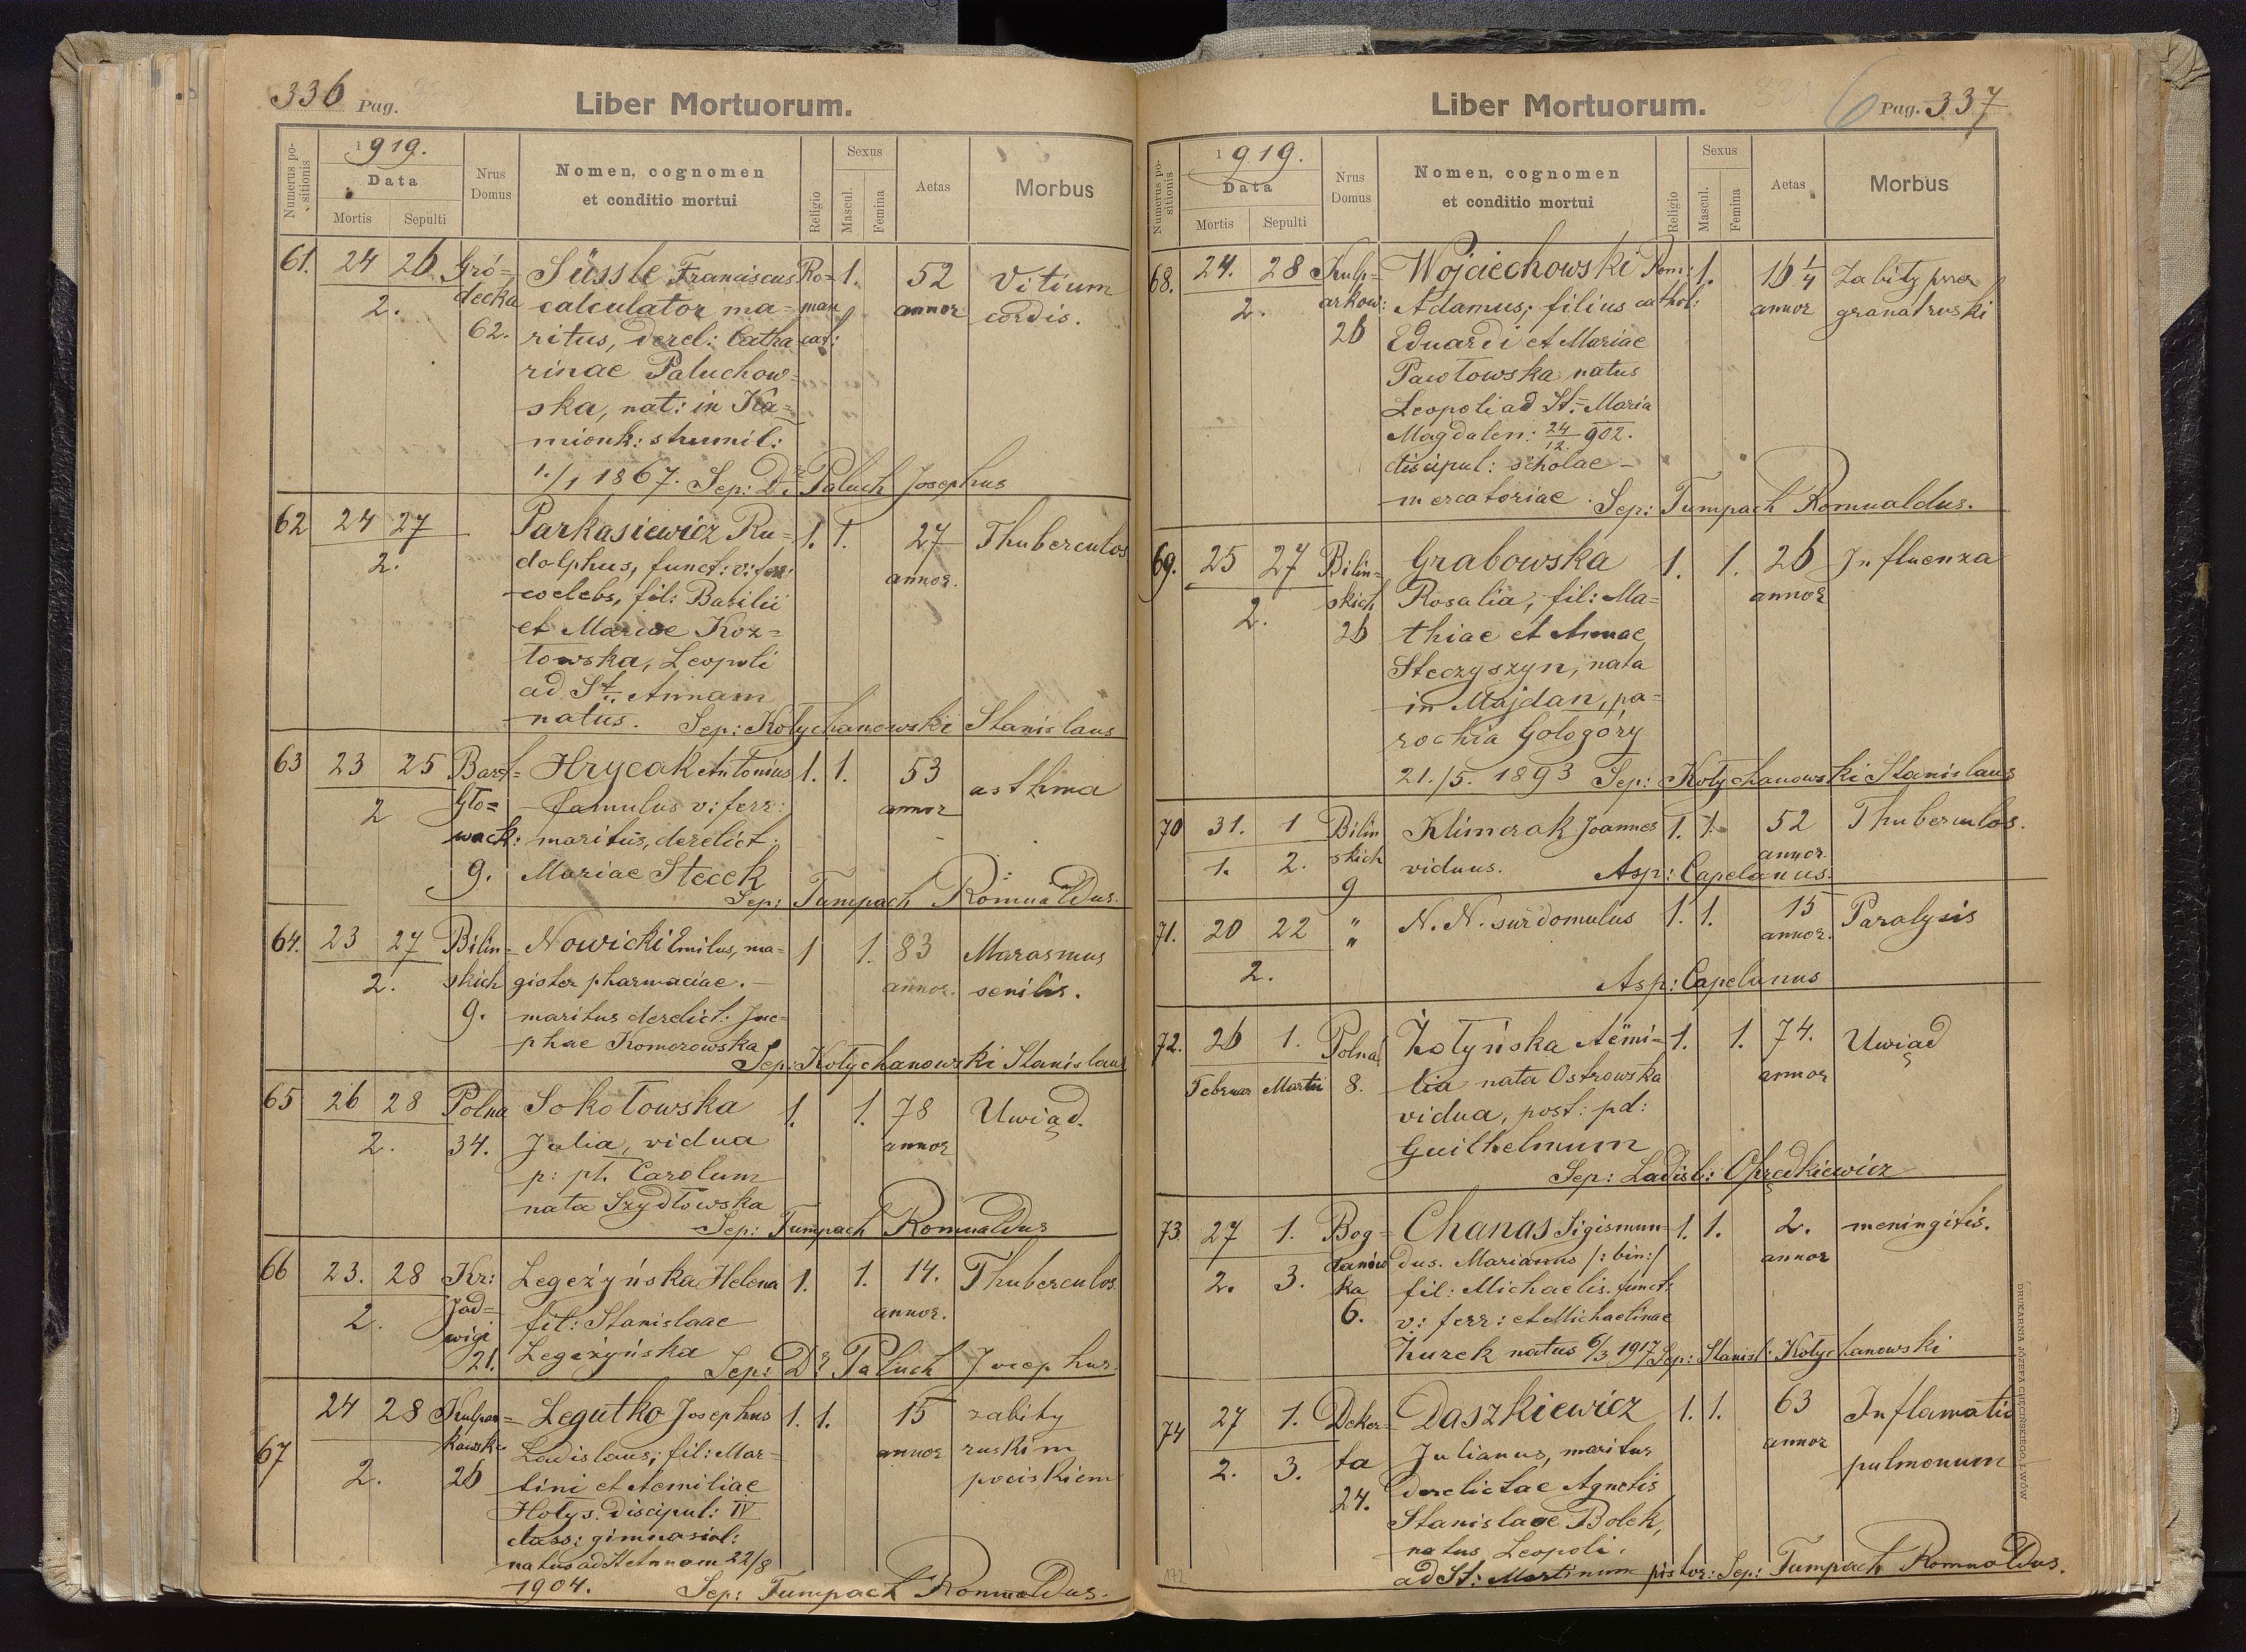 336 Pag.
Liber Mortuorum.
Numerus positionis
1919.
Data
Mortis
Sepulti
Nrus Domus
Nomen, cognomen
et conditio mortui
Religio
Sexus
Mascul.
Femina
Aetas
Morbus
61. 24 26 Gró= Süssle Franciscus Ro= 1. 52 Vitium
2. decka calculator ma= man annor cordis.
62. ritus, derel: Catha cat:
rinae Paluchow=
ska, nat: in Ka=
mionk: strumił:
1./1 1867. Sep: Dr. Paluch Josephus
62 24 27 Parkasiewicz Ru= 1. 1. 27 Thuberculos
2. dolphus, funct: v: fer: annor.
coelebs, fil: Basilii
et Mariae Koz=
łowska, Leopoli
ad St. Annam
natus. Sep: Kotychanowski Stanislaus
63 23 25 Bart= Hrycak Antonius 1. 1. 53 asthma
2 Gło= famulus v: ferr: annor
wack: maritus, derelict:
9. Mariae Stecek
Sep: Tumpach Romualdus.
64. 23 27 Bilin= Nowicki Emilus, ma= 1 1. 83 Marasmus
2. skich gister pharmaciae. annor. senilis.
9. maritus derelict: Jose=
phae Komorowska
Sep: Kotychanowski Stanislaus
65 26 28 Polna Sokołowska 1. 1. 78 Uwiąd.
2. 34. Julia, vidua annor
p: pt. Carolum
nata Szydłowska
Sep: Tumpach Romualdus
66 23. 28 Kr: Legeżyńska Helena 1. 1. 14. Thuberculos.
2. Jad= fil: Stanislaae annor.
wigi Legeżyńska
21. Sep: Dr Paluch Josephus.
67 24 28 Kulpar= Legutko Josephus 1. 1. 15 zabity
2. kowsk. Ladislaus; fil: Mar= annor ruskim
26 tini et Aemiliae pociskiem
Hołys. Discipul: IV
class: gimnasial:
natus ad St Annam 22/8
1904. Sep: Tumpach Romualdus.
Liber Mortuorum.
6 Pag. 337
Numerus positionis
1919.
Data
Mortis
Sepulti
Nrus Domus
Nomen, cognomen
et conditio mortui
Religio
Sexus
Mascul.
Femina
Aetas
Morbus
68. 24. 28 Kulp= Wojciechowski Rom: 1. 16 1/4 Zabity przez
2. arkow: Adamus; filius cathol: annor granat ruski
26 Eduardi et Mariae
Pawłowska natus
Leopoli ad St. Maria
Magdalen: 24/12 902.
discipul: scholae
mercatoriae. Sep: Tumpach Romualdus.
69. 25 27 Bilin= Grabowska 1. 1. 26 Influenza
2. skich Rosalia, fil: Ma= annor
26 thiae et Annae
Steczyszyn, nata
in Majdan, pa=
rochia Gołogóry
21./5. 1893 Sep: Kotychanowski Stanislaus
70 31. 1 Bilin Klimczak Joannes 1. 1. 52 Thuberculos.
1. 2. skich viduus. annor.
9 Asp: Capelanus.
71. 20 22 " N. N. surdomulus 1. 1. 15 Paralysis
2. " annor.
Asp: Capelanus
72. 26 1. Polna Żołyńska Aemi= 1. 1. 74. Uwiąd
Februar Martii 8. lia nata Ostrowska annor
vidua, post: pd:
Guilhelmum
Sep: Ladisl: Chrędkiewicz
73. 27 1. Bog= Chanas Sigismun= 1. 1. 2. meningitis.
2. 3. danów dus. Marianus /: bin:/ annor
ka fil: Michaelis. funct:
6. v: ferr: et Michaelinae
Żurek natus 6/3 1917 Sep: Stanisl: Kotychanowski
74 27 1. Deker= Daszkiewicz 1. 1. 63 Inflamatio
2. 3. ta Julianus, maritus annor pulmonum
24. derelictae Agnetis
Stanislaae Bolek,
natus Leopoli.
ad St: Martinum pistor: Sep: Tumpach Romualdus.
172
DRUKARNIA JÓZEFA CHĘCIŃSKIEGO, LWÓW